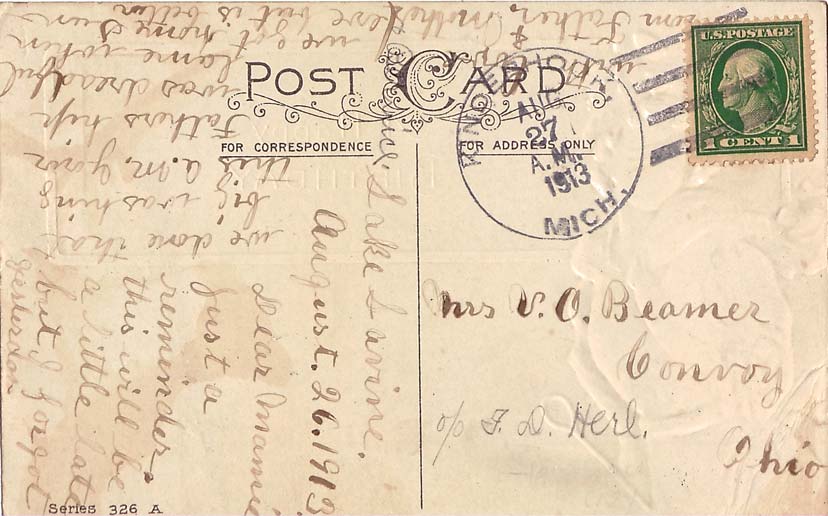 POST CARD
FOR CORRESPONDENCE
FOR ADDRESS ONLY
U.S. POSTAGE
1 CENT 1
AUG
27
A.M.
1913
MICH.
Mrs V. O. Beamer
Convoy
Ohio
c/o F. D. Herl.
Lake Lavine.
August. 26. 1913
Dear Mamie
Just a
reminder
this will be
a little late
but I forgot
yesterday
we done that
big washing
this a.m. your
Fathers trip
was dreadful
lame when
we got home Sun
eve but is better
from Father, Mother
Series 326 A